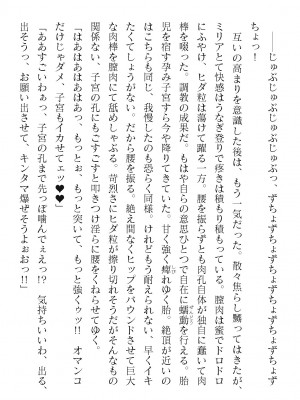 ――じゅぶじゅぶじゅぶじゅぶっ、ずちょずちょずちょずちょずちょっ!
互いの高まりを意識した後は、もう一気だった。散々焦らし嬲ってはきたが、
ミリアとて快感はうなぎ登りで疼きは積もり積もっている。膣肉は蜜でドロドロ
にふやけ、ヒダ粒は蕩けて躍る一方。腰を振らずとも肉孔自体が独自に蠢いて肉
棒を啜った。調教の成果だ。もはや自らの意思ひとつで自在に蠕動を行える。胎
児を宿す孕み子宮すら今や降りてきていた。甘く強く痺れゆく胎。絶頂の誘惑に
はこちらも同じ、我慢したのも恐らく同様。けれどもう耐えられない、早くイキ
たくてしょうがない。だから腰を振る。絶え間なくヒップをバウンドさせて巨大
な肉棒を膣肉にて舐めしゃぶる。苛烈さにヒダ粒が擦り切れそうだがそんなもの
関係ない、子宮の孔にもごすごすと叩きつけ淫らに腰をくねらせてゆく。
「はあはあはあはあっ、もっとぉ、もっと突いて、もっと強くゥッ!! オマンコ
だけじゃダメ、子宮もイカせてェッ♥♥」
「ああすごいわぁっ。子宮の孔まで先っぽ噛んでぇえっ!? 気持ちいいわ、出る、
出そうっ、お願い出させて、キンタマ爆ぜそうよぉおっ!!」